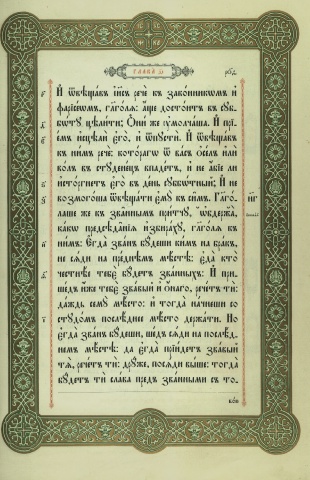 ГЛАВА Д҃І
И҆ ѿвѣща́въ і҆и҃съ речѐ къ зако́нникѡмъ и҆
фарїсе́ѡмъ, гл҃го́лѧ: а҆́ще досто́итъ въ сꙋб-
бѡ́тꙋ цѣли́ти; Ѻ҆ни́ же ᲂу҆молча́ша. И҆ прїе́-
мъ и҆сцѣлѝ є҆го̀, и҆ ѿпꙋстѝ. И҆ ѿвѣща́въ
къ ни̑мъ речѐ: кото́рагѡ ѿ ва́съ ѻ҆се́лъ и҆лѝ
во́лъ въ стꙋдене́цъ впаде́тъ, и҆ не а҆́бїе ли
и҆сто́ргнетъ є҆го̀ въ де́нь сꙋббѡ́тный; И҆ не
возмого́ша ѿвѣща́ти є҆мꙋ̀ къ си̑мъ. Глаго́-
лаше же къ зва̑ннымъ при́тчꙋ, ѡ҆держа̀,
ка́кѡ предсѣда̑нїѧ и҆збира́хꙋ, глаго́лѧ къ
ни̑мъ: Є҆гда̀ зва́нъ бꙋ́деши ки́мъ на бра́къ,
не сѧ́ди на пре́днемъ мѣ́стѣ: є҆да̀ кто̀
честнѣ́е тебє̀ бꙋ́детъ зва́нныхъ: И҆ при-
ше́дъ и҆́же тебѐ зва́вый и҆ ѻ҆́наго, рече́тъ тѝ:
да́ждь семꙋ̀ мѣ́сто: и҆ тогда̀ на́чнеши со
стꙋдо́мъ послѣ́днее мѣ́сто держа́ти. Но
є҆гда̀ зва́нъ бꙋ́деши, ше́дъ сѧ́ди на послѣ́д-
немъ мѣ́стѣ: да є҆гда̀ прїи́детъ зва́вый
тѧ̀, рече́тъ тѝ: дрꙋ́же, посѧ́ди вы́ше: тогда̀
бꙋ́детъ тѝ сла́ва пред̾ зва́нными съ то-